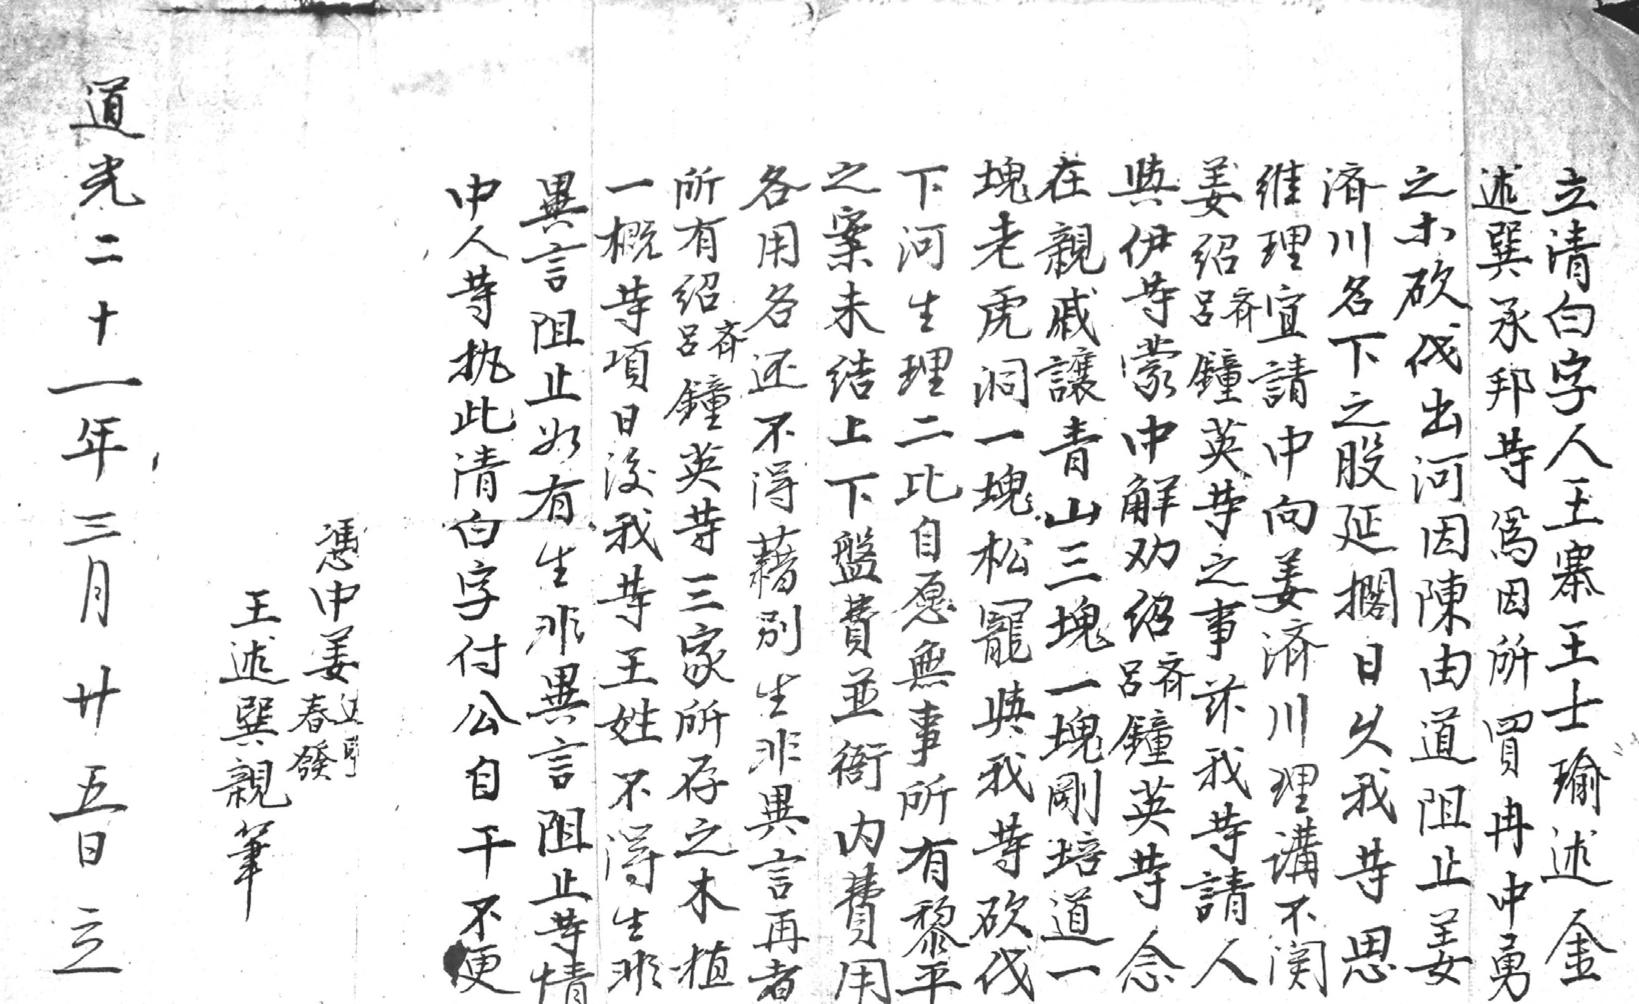 立清白字人王寨王士瑜述金
述巽承邦等為因所買冉中勇
之木砍伐出河因陳由道阻止姜
濟川名下之股延擱日久我等思
維理宜請中向姜濟川理講不関
姜紹呂齊鐘英等之事玆我等請人
與伊等蒙中解劝紹呂齊鐘英等念
在親戚讓青山三塊一塊剛培道一
塊老虎洞一塊松寵與我等砍伐
下河生理二比自愿無事所有黎平
之案未结上下盤費並衙内費用
各用各还不得藉别生非異言再者
所有紹呂齊鐘英等三家所存之木植
一概等項日後我等王姓不得生非
異言阻止如有生非異言阻止等情
中人等执此清白字付公自干不便
憑中姜春發
王述巽親筆
道光二十一年三月廿五日立